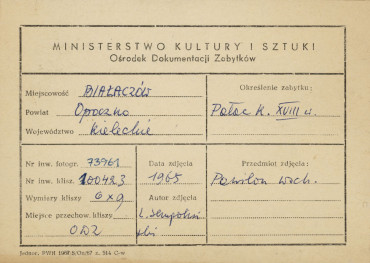 MINISTERSTWO KULTURY I SZTUKI
Ośrodek Dokumentacji Zabytków
Miejscowość BIAŁACZÓW
Powiat Opoczno
Województwo kieleckie
Określenie zabytku:
Pałac k. XVIII w.
Nr inw. fotogr. 73961
Nr inw. klisz. 100423
Wymiary kliszy 6x9
Miejsce przechow. kliszy
ODZ
Data zdjęcia
1965
Autor zdjęcia
Przedmiot zdjęcia:
Pawilon wsch.